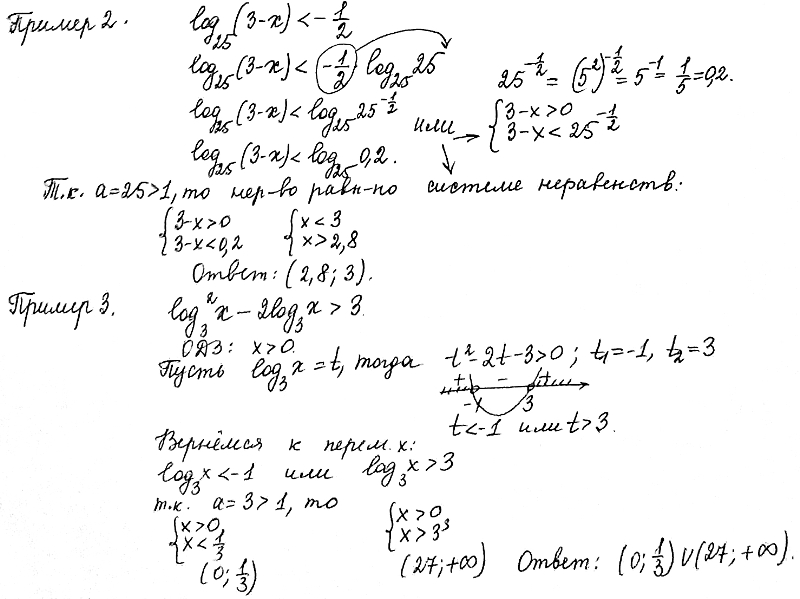 Пример 2. log₂₅(3-x) < -1/2
log₂₅(3-x) < -1/2 · log₂₅25
25^(-1/2) = (5²)^(-1/2) = 5⁻¹ = 1/5 = 0,2.
log₂₅(3-x) < log₂₅25^(-1/2) или → { 3-x>0
3-x < 25^(-1/2)
log₂₅(3-x) < log₂₅0,2.
Т.к. a=25>1, то нер-во равн-но системе неравенств:
{ 3-x>0 { x<3
3-x<0,2 x>2,8
Ответ: (2,8; 3).
Пример 3. log₃²x - 2log₃x > 3.
ОДЗ: x>0.
Пусть log₃x = t, тогда t²-2t-3>0; t₁=-1, t₂=3
+ - +
-1 3
t<-1 или t>3.
Вернёмся к перем. x:
log₃x < -1 или log₃x > 3
т.к. a=3>1, то
{ x>0 { x>0
x<1/3 x>3³
(0; 1/3) (27; +∞) Ответ: (0; 1/3) U (27; +∞).